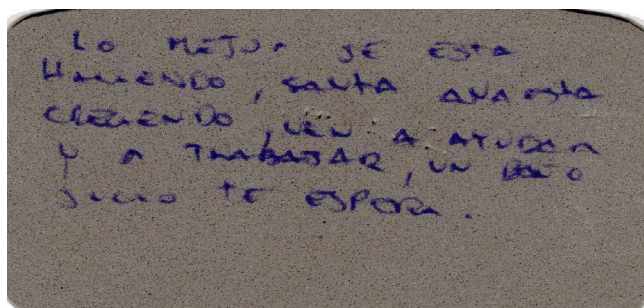 LO MEJOR SE ESTA
HACIENDO, SANTA ANA ESTA
CRECIENDO, VEN A AYUDAR
Y A TRABAJAR, UN BAÑO
SUCIO TE ESPERA.